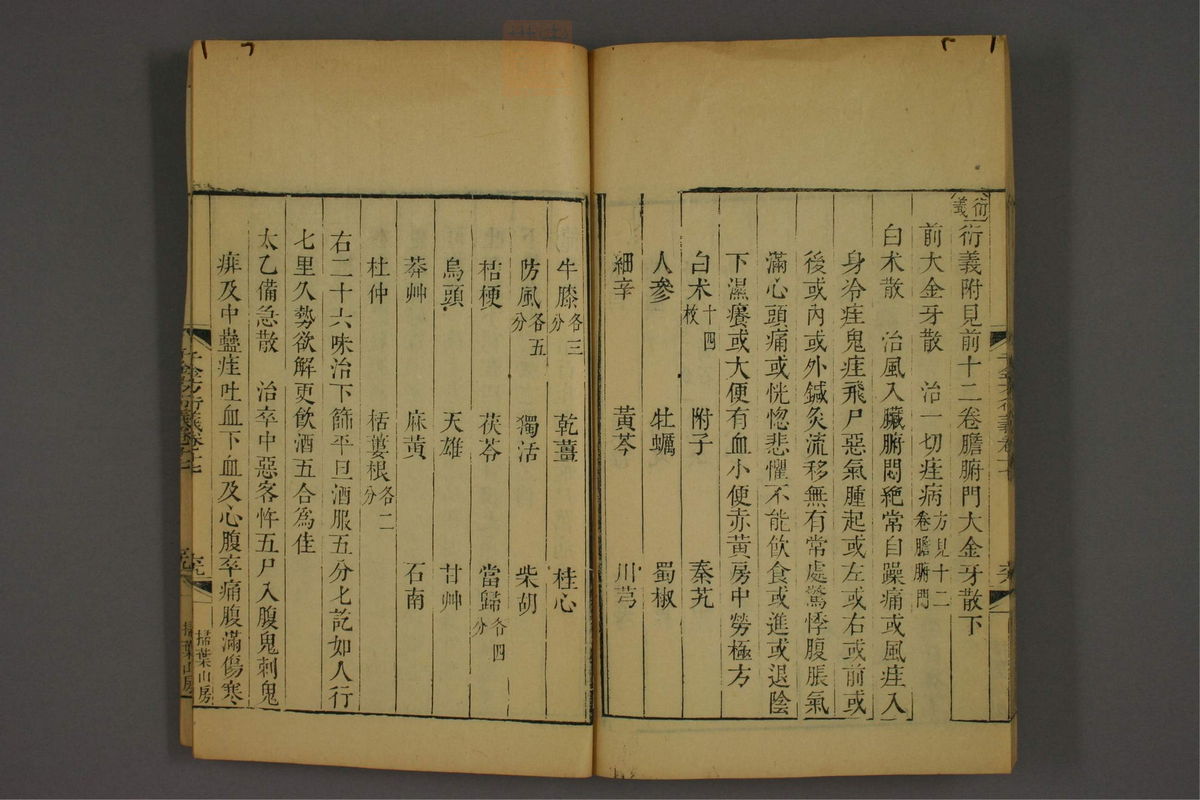 衍義
衍義附見前十二卷膽腑門大金牙散下
前大金牙散　治一切疰病方見十二卷膽腑門
白朮散　治風入臟腑悶絶常自躁痛或風疰入
身冷疰鬼疰飛尸惡氣腫起或左或右或前或
後或內或外鍼灸流移無有常處驚悸腹脹氣
滿心頭痛或恍惚悲懼不能飲食或進或退陰
下濕癢或大便有血小便赤黃房中勞極方
白朮十四枚　附子　秦艽
人參　牡蠣　蜀椒
細辛　黃芩　川芎
牛膝各三分　乾薑　桂心
防風各五分　獨活　柴胡
桔梗　茯苓　當歸各四分
烏頭　天雄　甘艸
莽艸　麻黃　石南
杜仲　栝蔞根各二分
右二十六味治下篩平旦酒服五分匕訖如人行
七里久勢欲解更飲酒五合爲佳
太乙備急散　治卒中惡客忤五尸入腹鬼刺鬼
痱及中蠱疰吐血下血及心腹卒痛腹滿傷寒
千金方衍義卷十七
掃葉山房
掃葉山房